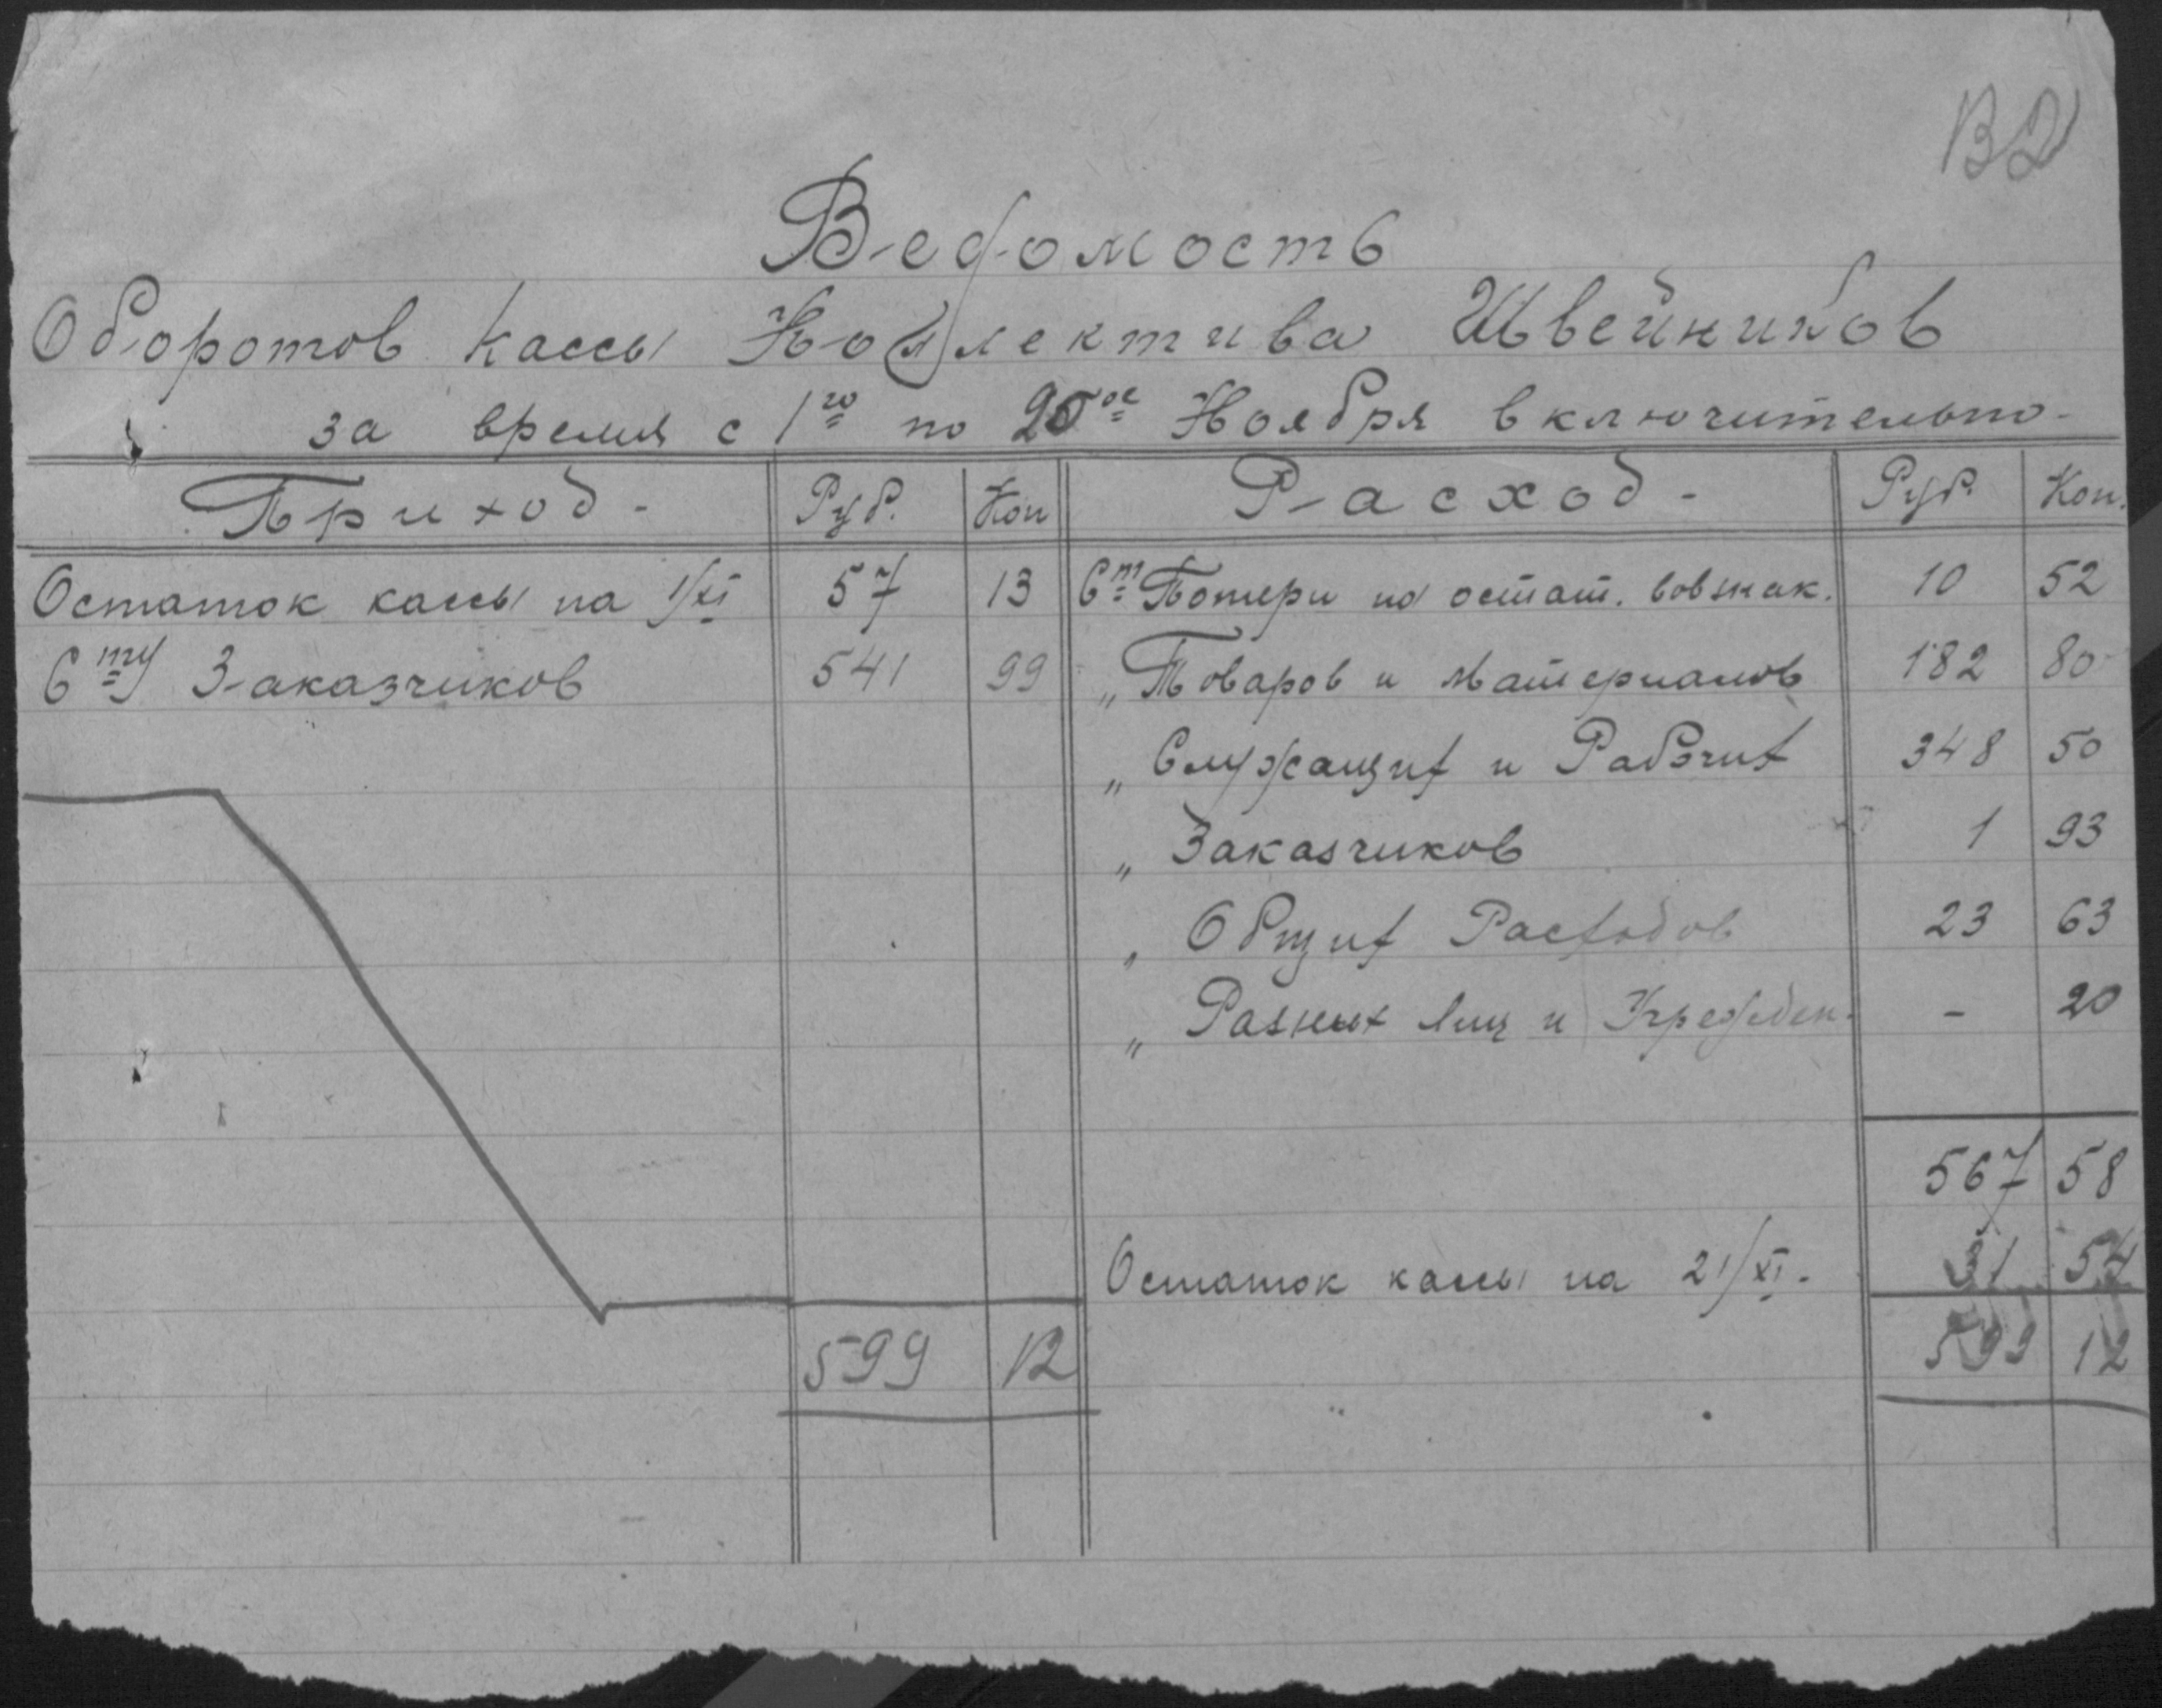 В2
Ведомость
Оборотов Кассы Коллектива Швейников
за время с 1го по 20ое Ноября включительно-
Приход- Руб. Коп Расход- Руб. Коп.
Остаток кассы на 1/XI 57 13 Ст Потери на остат. совзнак. 10 52
Сту Заказчиков 541 99 „ Товаров и Материалов 182 80
„ Служащих и Рабочих 348 50
„ Заказчиков 1 93
„ Общих Расходов 23 63
„ Разных Лиц и Учрежден. - 20
567 58
Остаток кассы на 21/XI. 31 54
599 12 599 12